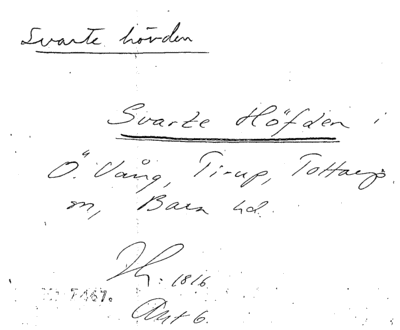 Svarte hövden
Svarte Höfden i
Ö. Vång, Tirup, Tottarps
m, Bara hd.
1816
Akt 6.